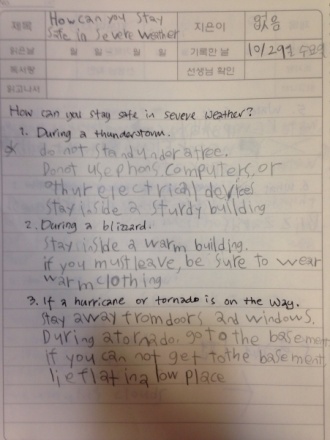 제목 How can you stay safe in severe weather 지은이 없음
읽은날 월 일 월 일 기록한 날 10/29일 수요일
독서량 선생님 확인
읽고나서
How can you stay safe in severe weather?
1. During a thunderstorm.
do not stand under a tree.
Do not use phons, computers, or
othur electrical devices
Stay inside a sturdy building
2. During a blizzard.
Stay inside a warm building.
if you must leave, be sure to wear
warm clothing
3. If a hurricane or tornado is on the way.
Stay away from doors and windows.
During a tornado, go to the basement
if you can not get to the basement
lie flat in a low place